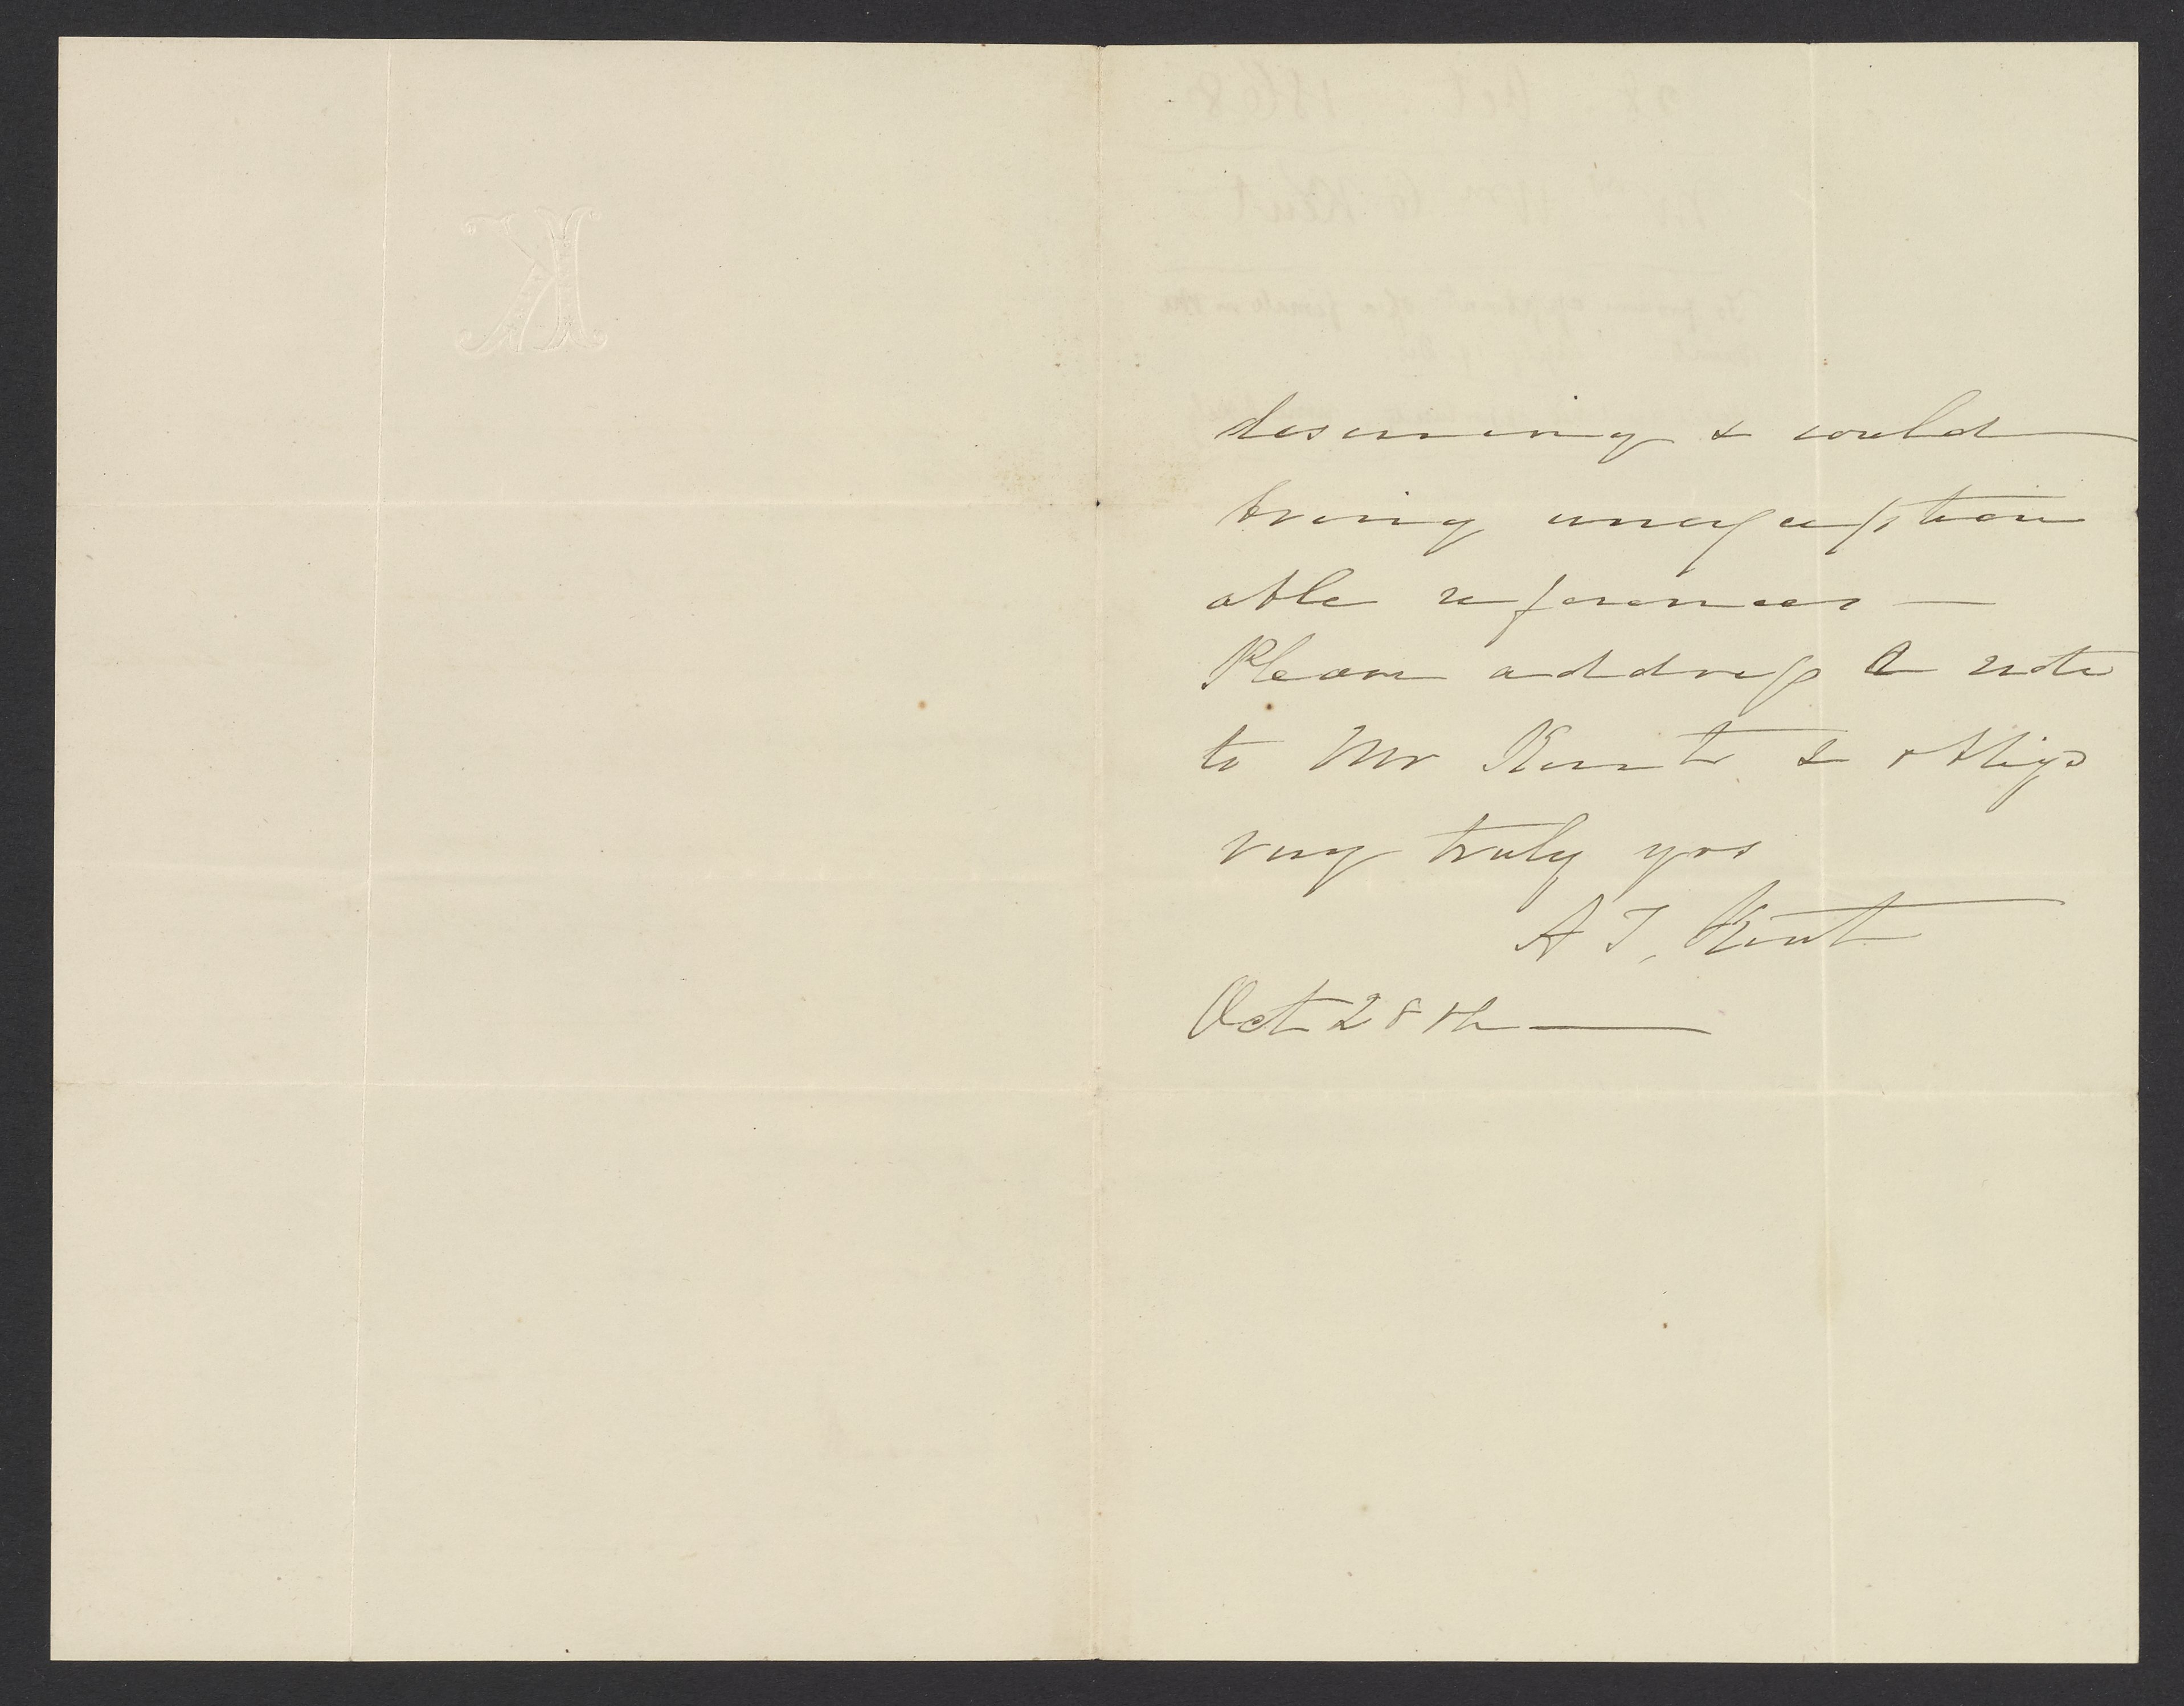 deserving & could
bring unexception
able references —
Please address a note
to Mr Kent & oblige
very truly yrs
A T, Kent
Oct 28th —